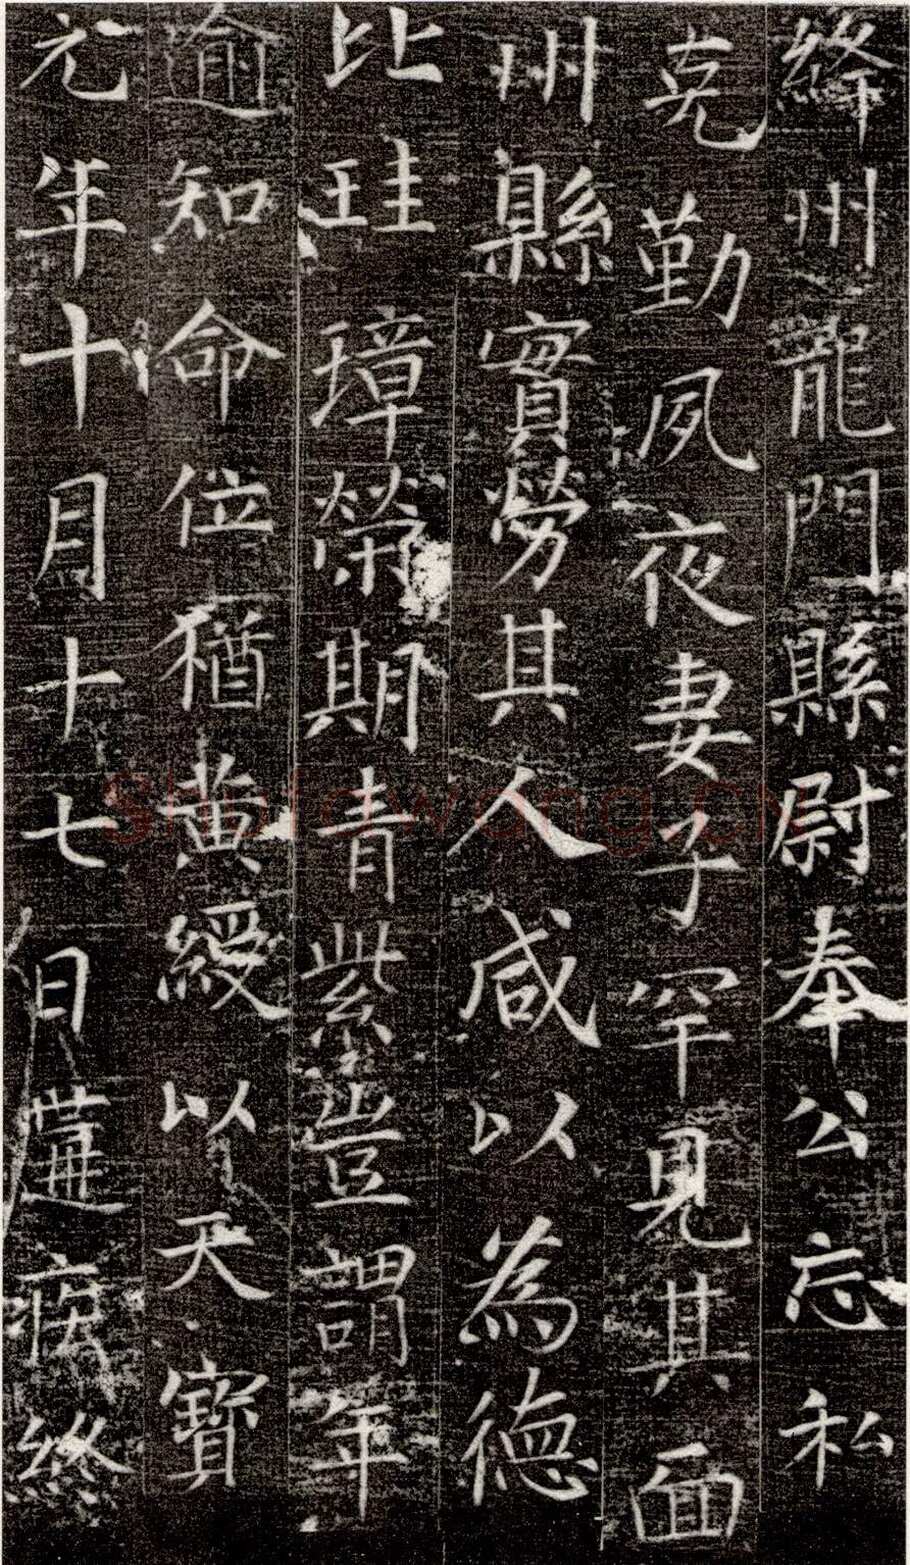 絳州龍門縣尉奉公忘私
克勤夙夜妻子罕見其面
州縣實勞其人咸以為德
比珪璋榮期青紫豈謂年
逾知命位猶黃綬以天寶
元年十月十七日遘疾終
Shufawang.cn